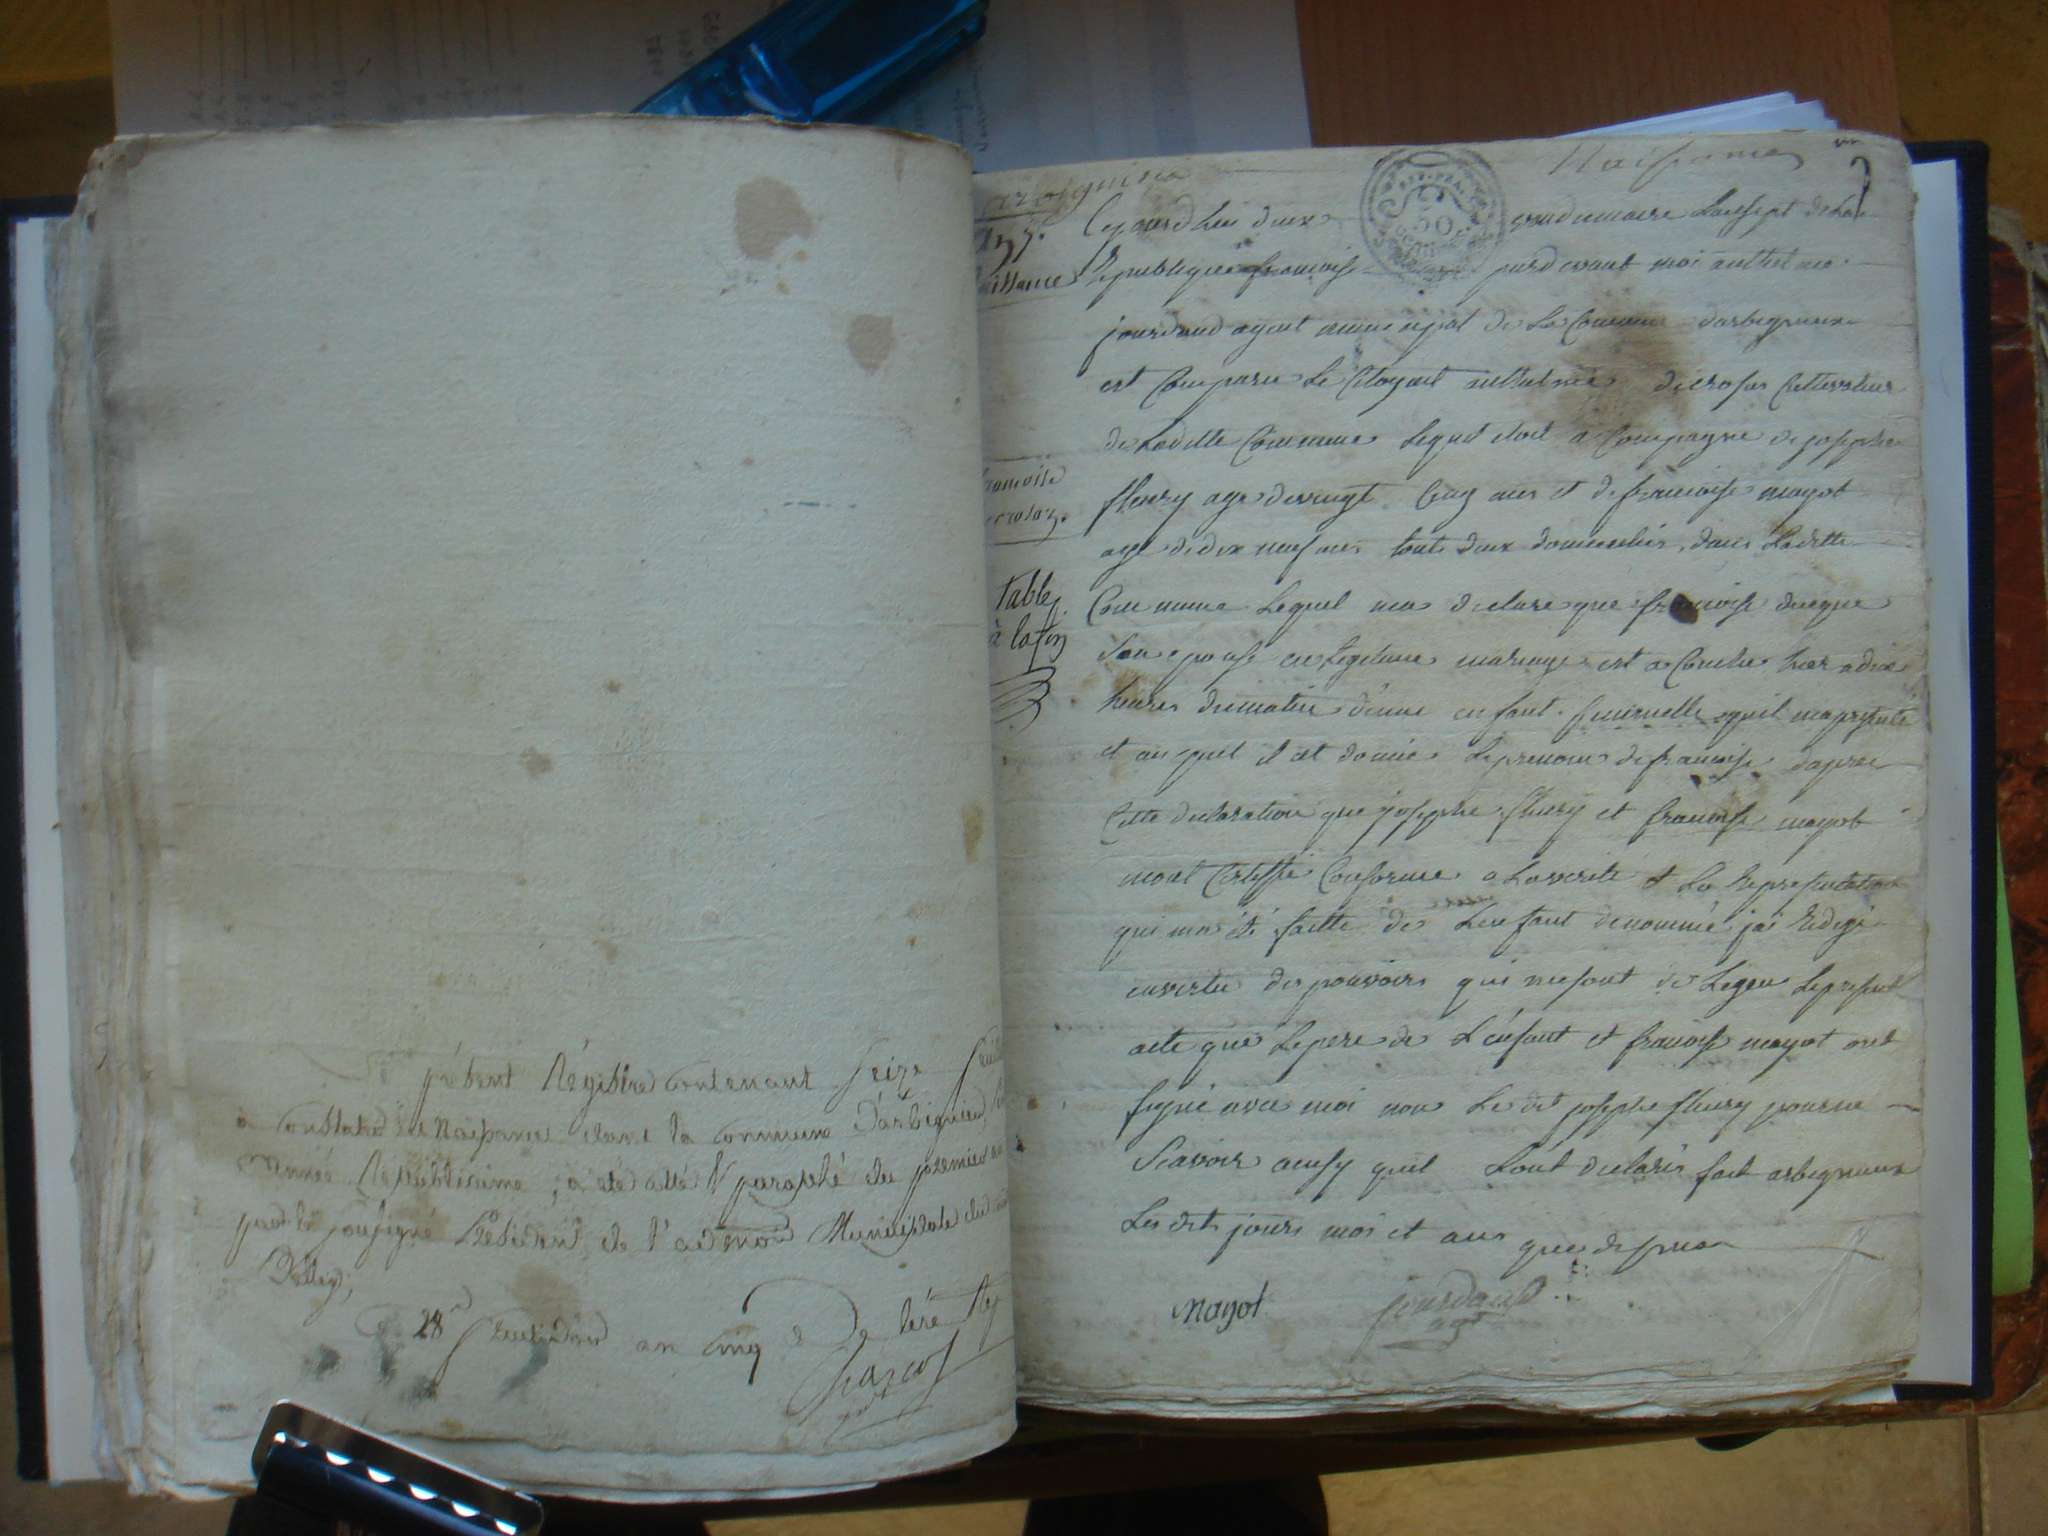 présent Régistre contenant Seize
à constater les Naissance dans la commune d'arbignieu
année Républicaine, a été coté & paraphé du premier au
par le soussigné Président de l'administration Municipale du
Belley,
28 fructidor an cinq
arbignieu
Naissances
an 7.
Naissance
françoise
crosaz.
table
à la fin
Ce jourd'hui deux vendemiaire Lansept de La
Republique françoise pardevant moi anthelme
jourdand agent municipal de La Commune darbignieux
est Comparu Le Citoyent anthelme decrosas Cultivateur
de Ladille Commune Lequel etoit a Compagne de josephe
fleury age devingt Cinq ans et de françoise mayot
age dedix neuf ans touts deux domicilies dans Ladille
Commune Lequel ma declare que françoise
Son epouse en Legitime mariage est a Couche hier a dix
heures dumatin dune enfant femenelle quil mapresenté
et au quel il at donné Leprenom defrançoise dapres
Cette declaration que josephe fleury et françoise mayot
mont Certiffie Conforme a Laverité et La Representation
qui ma été faitte de Lenfant denommé jai Redigé
envertu des pouvoirs qui mesont de Legeu Lepresent
acte que Lepere de Lenfant et françoise mayot ont
signé avec moi non Le dit josephe fleury pourne
Scavoir ainsy quil Lont declaré fait arbignieux
Les dits jours mois et ans que dessus
mayot jourdand
agt